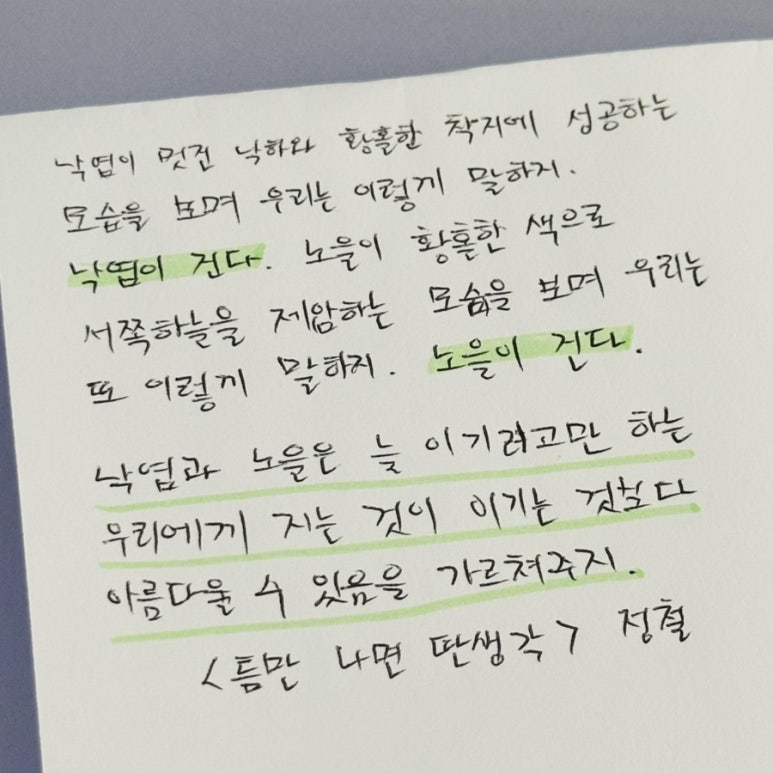 낙엽이 멋진 낙하와 황홀한 착지에 성공하는
모습을 보며 우리는 이렇게 말하지.
낙엽이 진다. 노을이 황홀한 색으로
서쪽하늘을 제압하는 모습을 보며 우리는
또 이렇게 말하지. 노을이 진다.
낙엽과 노을은 늘 이기려고만 하는
우리에게 지는 것이 이기는 것보다
아름다울 수 있음을 가르쳐주지.
<틈만 나면 딴생각> 정철